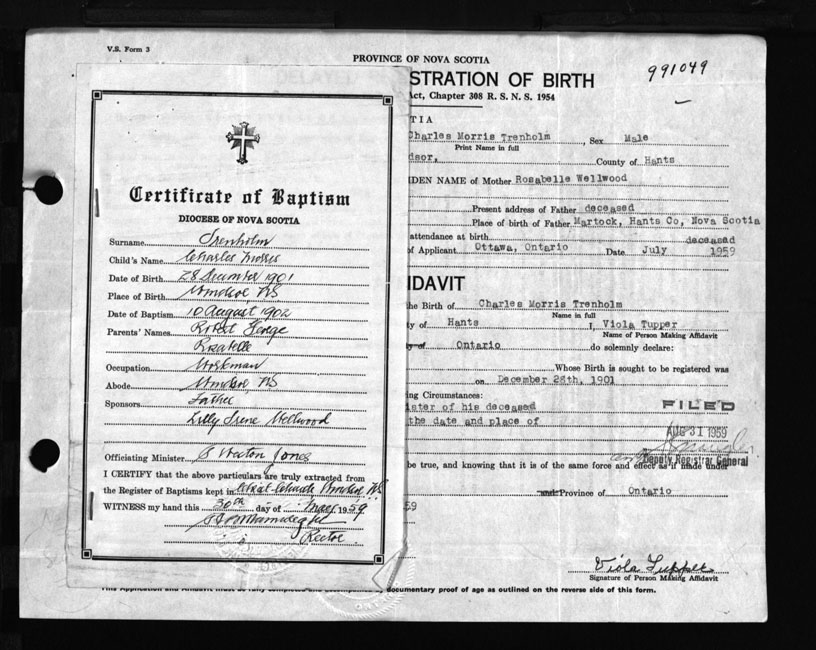 V.S. Form 3
PROVINCE OF NOVA SCOTIA
STRATION OF BIRTH
991049
Act, Chapter 308 R. S. N. S. 1954
TIA
Charles Morris Trenholm, Sex Male
Print Name in full
dsor, County of Hants
IDEN NAME of Mother Rosabelle Wellwood
Present address of Father deceased
Place of birth of Father Martock, Hants Co, Nova Scotia
attendance at birth deceased
of Applicant Ottawa, Ontario Date July 1959
IDAVIT
he Birth of Charles Morris Trenholm
Name in full
ty of Hants I, Viola Tupper
Name of Person Making Affidavit
Ontario do solemnly declare:
Whose Birth is sought to be registered was
on December 28th, 1901
ng Circumstances:
ister of his deceased
the date and place of
FILED
AUG 31 1959
Deputy Registrar General
be true, and knowing that it is of the same force and effect as if made under
Province of Ontario
59
Viola Tupper
Signature of Person Making Affidavit
documentary proof of age as outlined on the reverse side of this form.
Certificate of Baptism
DIOCESE OF NOVA SCOTIA
Surname Trenholm
Child's Name Charles
Date of Birth 28 December 1901
Place of Birth Windsor NS
Date of Baptism 10 August 1902
Parents' Names Robert George
Occupation Workman
Abode Windsor NS
Sponsors Father
Lilly Irene Wellwood
Officiating Minister Jones
I CERTIFY that the above particulars are truly extracted from
the Register of Baptisms kept in
WITNESS my hand this 30th day of 1959
Rector